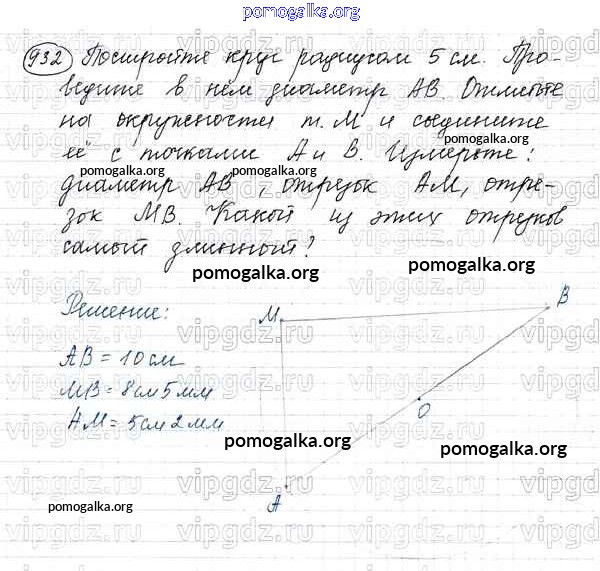 pomogalka.org
932 Постройте круг радиусом 5 см. Про-
ведите в нём диаметр AB. Отметьте
на окружности т. M и соедините
pomogalka.org
её с точками A и B. Измерьте:
pomogalka.org pomogalka.org
диаметр AB, отрезок AM, отре-
зок MB. Какой из этих отрезков
самый длинный?
pomogalka.org pomogalka.org
Решение:
M B
AB = 10 см
MB = 8 см 5 мм
AM = 5 см 2 мм
O
pomogalka.org pomogalka.org
A
pomogalka.org pomogalka.org
vipgdz.ru